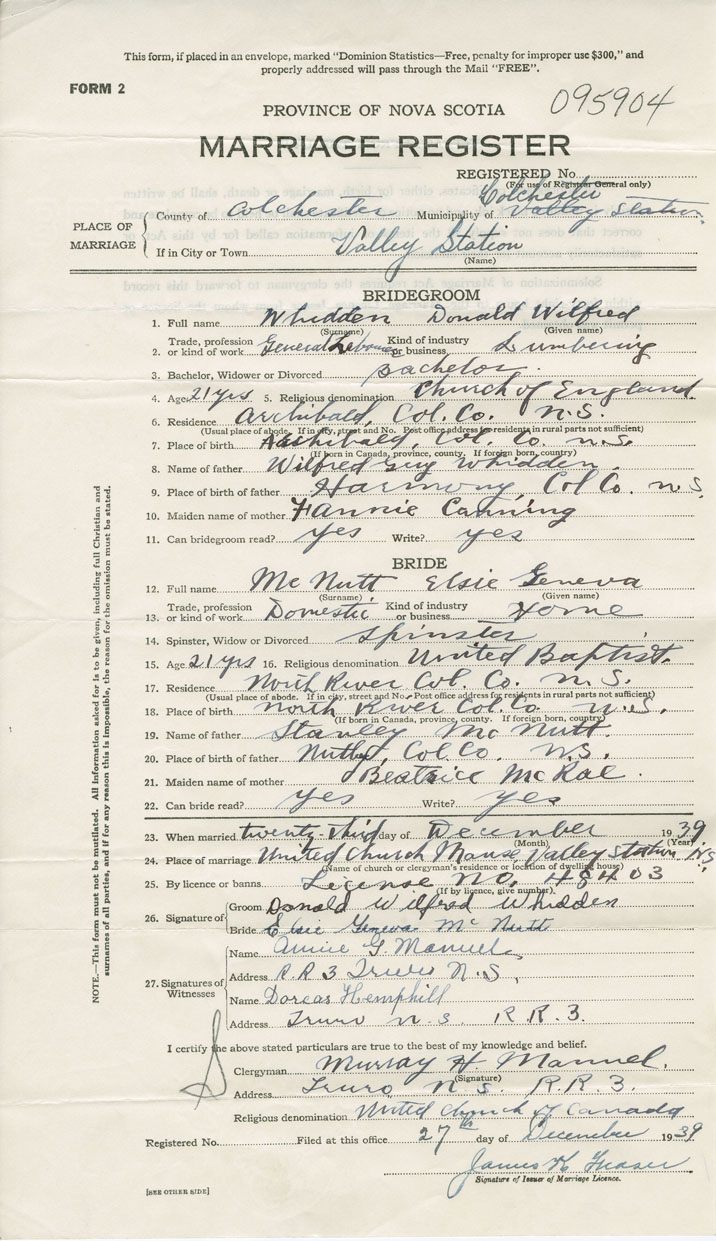 This form, if placed in an envelope, marked "Dominion Statistics—Free, penalty for improper use $300," and
properly addressed will pass through the Mail "FREE".
FORM 2
095904
PROVINCE OF NOVA SCOTIA
MARRIAGE REGISTER
REGISTERED No.
(For use of Registrar General only)
Colchester
PLACE OF MARRIAGE
County of Colchester Municipality of Valley Station
If in City or Town Valley Station
(Name)
BRIDEGROOM
1. Full name Whidden Donald Wilfred
(Surname) (Given name)
2. Trade, profession or kind of work General Kind of industry or business Lumbering
3. Bachelor, Widower or Divorced Bachelor
4. Age 21 yrs 5. Religious denomination Church of England.
6. Residence Archibald, Col. Co. N.S.
(Usual place of abode. If in city, street and No. Post office address for residents in rural parts not sufficient)
7. Place of birth Archibald, Col. Co. N.S.
(If born in Canada, province, county. If foreign born, country)
8. Name of father Wilfred Guy Whidden.
9. Place of birth of father Harmony, Col Co. N.S.
10. Maiden name of mother Fannie Canning
11. Can bridegroom read? yes Write? yes
BRIDE
12. Full name McNutt Elsie Geneva
(Surname) (Given name)
13. Trade, profession or kind of work Domestic Kind of industry or business Home
14. Spinster, Widow or Divorced Spinster
15. Age 21 yrs 16. Religious denomination United Baptist.
17. Residence North River Col. Co. N.S.
(Usual place of abode. If in city, street and No. Post office address for residents in rural parts not sufficient)
18. Place of birth North River Col. Co. N.S.
(If born in Canada, province, county. If foreign born, country)
19. Name of father Stanley McNutt.
20. Place of birth of father Nuttby, Col. Co. N.S.
21. Maiden name of mother Beatrice McRae.
22. Can bride read? yes Write? yes
23. When married twenty-third day of December 1939
(Month) (Year)
24. Place of marriage United Church Manse, Valley Station N.S.
(Name of church or clergyman's residence or location of dwelling house)
25. By licence or banns License No. 48403
(If by licence, give number)
26. Signature of
Groom Donald Wilfred Whidden
Bride Elsie Geneva McNutt
27. Signatures of Witnesses
Name Annie G. Manuel,
Address R.R 3 Truro N.S,
Name Dorcas Hemphill
Address Truro N.S. R.R.3.
I certify the above stated particulars are true to the best of my knowledge and belief.
Clergyman Murray H. Manuel.
(Signature)
Address Truro N.S. R.R.3.
Religious denomination United Church of Canada
Registered No. Filed at this office 27th day of December 1939
James K Fraser
Signature of Issuer of Marriage Licence.
[SEE OTHER SIDE]
NOTE.—This form must not be mutilated. All Information asked for is to be given, including full Christian and
surnames of all parties, and if for any reason this is impossible, the reason for the omission must be stated.